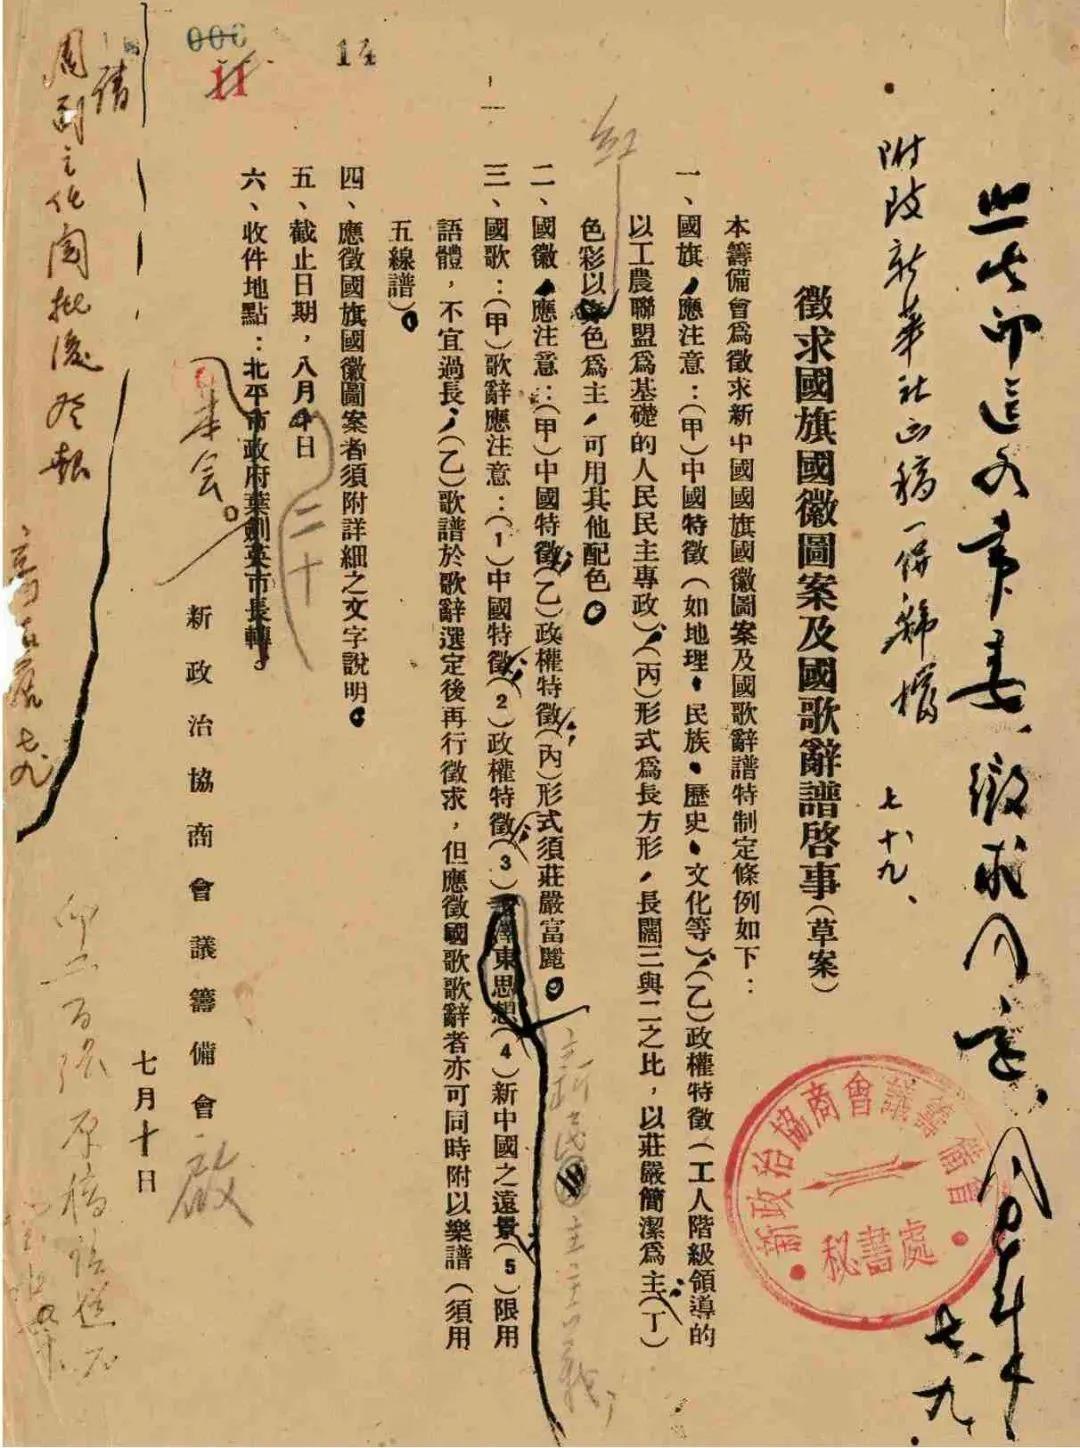 附致新華社函稿一併歸檔
七、十九、
七、九、
徵求國旗國徽圖案及國歌辭譜啓事(草案)
本籌備會爲徵求新中國國旗國徽圖案及國歌辭譜特制定條例如下:
一、國旗,應注意:(甲)中國特徵(如地理、民族、歷史、文化等),(乙)政權特徵(工人階級領導的
以工農聯盟爲基礎的人民民主專政),(丙)形式爲長方形,長闊三與二之比,以莊嚴簡潔爲主,(丁)
色彩以色爲主,可用其他配色。
紅
二、國徽,應注意:(甲)中國特徵;(乙)政權特徵;(丙)形式須莊嚴富麗。
三、國歌:(甲)歌辭應注意:(1)中國特徵;(2)政權特徵;(3)澤東思想(4)新中國之遠景;(5)限用
主義,
語體,不宜過長,(乙)歌譜於歌辭選定後再行徵求,但應徵國歌歌辭者亦可同時附以樂譜(須用
五線譜)。
四、應徵國旗國徽圖案者須附詳細之文字說明。
五、截止日期,八月日
二十
六、收件地點:北平市政府葉劍英市長轉。
本會。
新政治協商會議籌備會
啟
七月十日
請
周副主任閱批後發報
七、九
印二百張原稿
000
11
14
新政治協商會議籌備會
秘書處